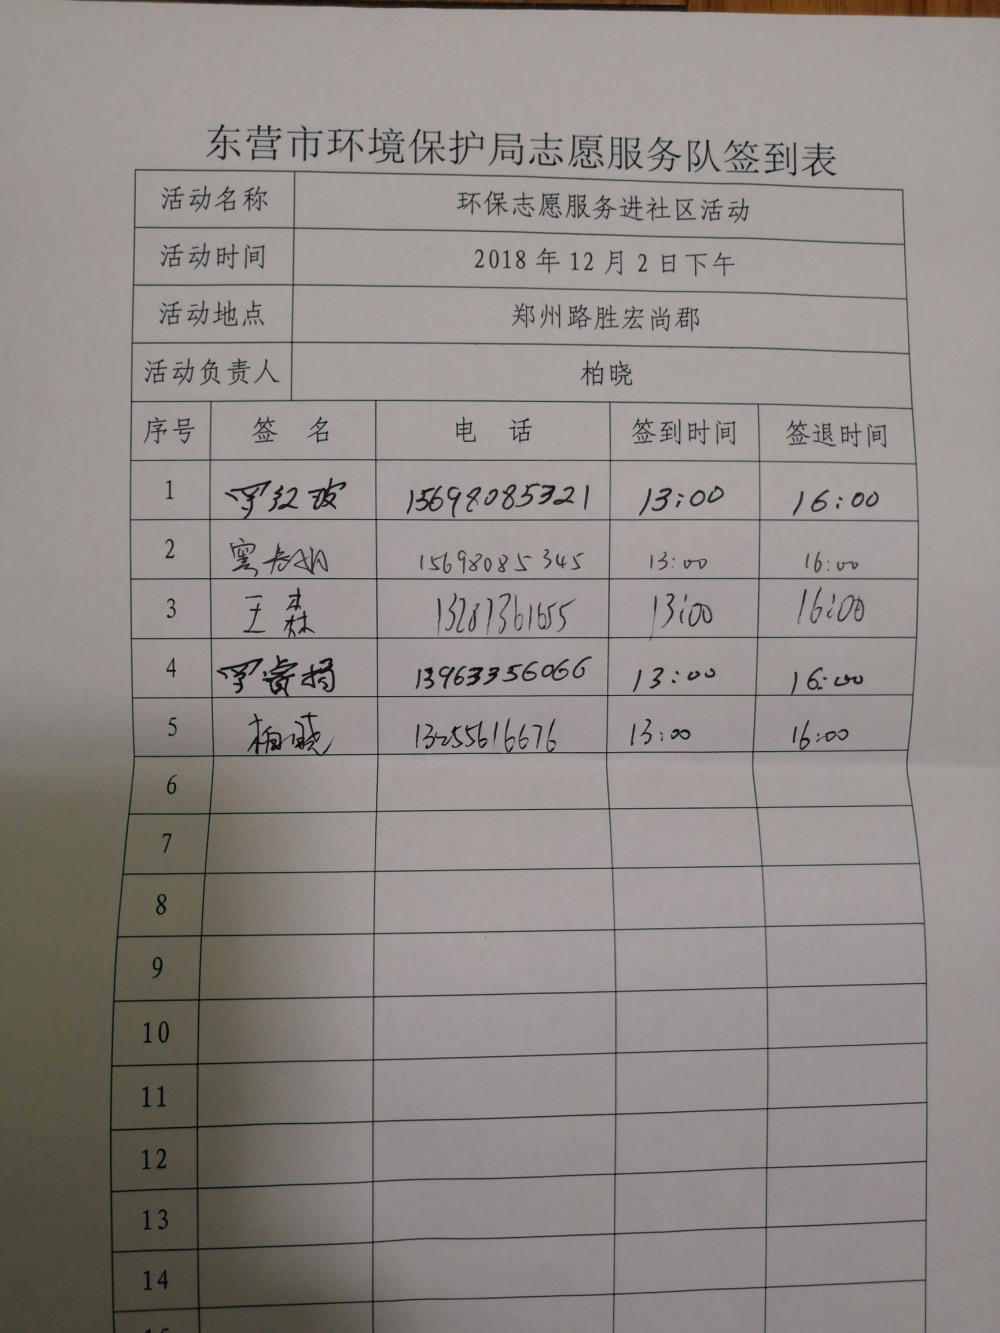 东营市环境保护局志愿服务队签到表
活动名称 环保志愿服务进社区活动
活动时间 2018年12月2日下午
活动地点 郑州路胜宏尚郡
活动负责人 柏晓
序号 签 名 电 话 签到时间 签退时间
1 罗红波 15698085321 13:00 16:00
2 15698085345 13:00 16:00
3 王森 13287361655 13:00 16:00
4 罗 13963356066 13:00 16:00
5 柏晓 13255616676 13:00 16:00
6
7
8
9
10
11
12
13
14